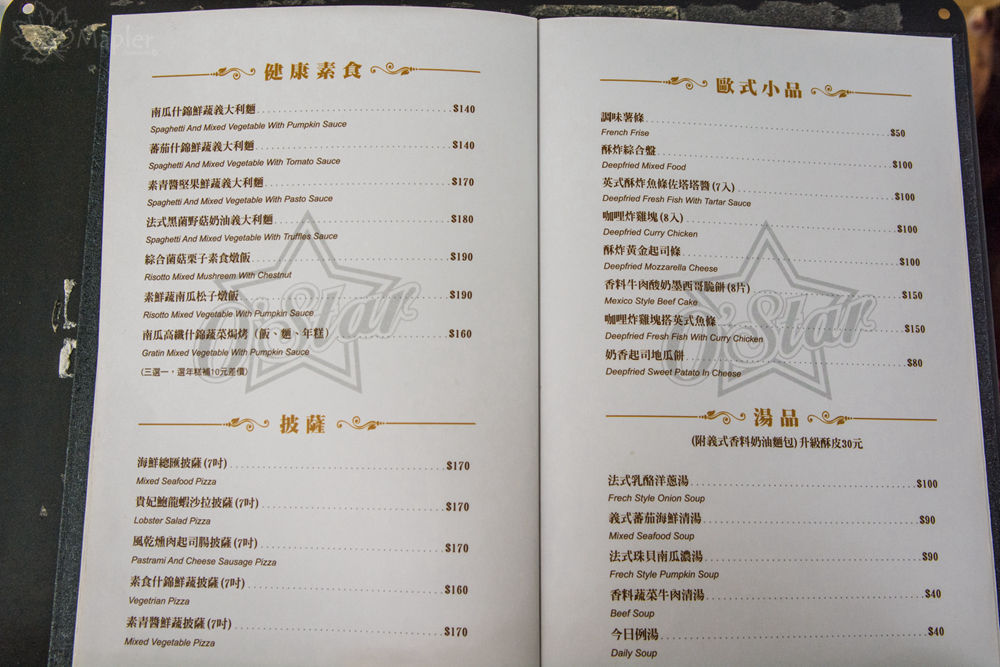 Mapler
健康素食
南瓜什錦鮮蔬義大利麵 $140
Spaghetti And Mixed Vegetable With Pumpkin Sauce
蕃茄什錦鮮蔬義大利麵 $140
Spaghetti And Mixed Vegetable With Tomato Sauce
素青醬堅果鮮蔬義大利麵 $170
Spaghetti And Mixed Vegetable With Pasto Sauce
法式黑菌野菇奶油義大利麵 $180
Spaghetti And Mixed Vegetable With Truffles Sauce
綜合菌菇栗子素食燉飯 $190
Risotto Mixed Mushreem With Chestnut
素鮮蔬南瓜松子燉飯 $190
Risotto Mixed Vegetable With Pumpkin Sauce
南瓜高纖什錦蔬菜焗烤（飯、麵、年糕） $160
Gratin Mixed Vegetable With Pumpkin Sauce
（三選一，選年糕補10元差價）
O'Star
披薩
海鮮總匯披薩(7吋) $170
Mixed Seafood Pizza
貴妃鮑龍蝦沙拉披薩(7吋) $170
Lobster Salad Pizza
風乾燻肉起司腸披薩(7吋) $170
Pastrami And Cheese Sausage Pizza
素食什錦鮮蔬披薩(7吋) $160
Vegetrian Pizza
素青醬鮮蔬披薩(7吋) $170
Mixed Vegetable Pizza
歐式小品
調味薯條 $50
French Frise
酥炸綜合盤 $100
Deepfried Mixed Food
英式酥炸魚條佐塔塔醬(7入) $100
Deepfried Fresh Fish With Tartar Sauce
咖哩炸雞塊(8入) $100
Deepfried Curry Chicken
酥炸黃金起司條 $100
Deepfried Mozzarella Cheese
香料牛肉酸奶墨西哥脆餅(8片) $150
Mexico Style Beef Cake
咖哩炸雞塊搭英式魚條 $150
Deepfried Fresh Fish With Curry Chicken
奶香起司地瓜餅 $80
Deepfried Sweet Patato In Cheese
O'Star
湯品
(附義式香料奶油麵包)升級酥皮30元
法式乳酪洋蔥湯 $100
Frech Style Onion Soup
義式蕃茄海鮮清湯 $90
Mixed Seafood Soup
法式珠貝南瓜濃湯 $90
Frech Style Pumpkin Soup
香料蔬菜牛肉清湯 $40
Beef Soup
今日例湯 $40
Daily Soup